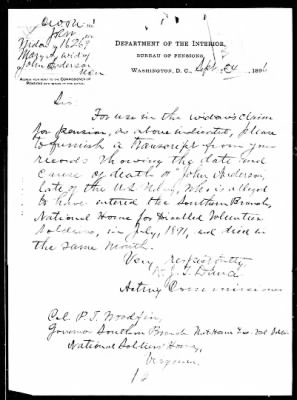 John
Widow 16269
Mary A. wid
John Anderson
Navy
DEPARTMENT OF THE INTERIOR,
BUREAU OF PENSIONS,
WASHINGTON, D. C., Sept. 24, 1891
Sir:
For use in the widow's claim
for pension, as above indicated, please
to furnish a transcript from your
records showing the date and
cause of death of "John Anderson,
late of the U.S. Navy, who is alleged
to have entered the Southern Branch,
National Home for Disabled Volunteer
Soldiers, in July, 1891, and died in
the same month.
Very respectfully
Acting Commissioner
Col. P. T. Woodfin,
Governor Southern Branch Nat. Home for Vol. Soldiers
National Soldiers' Home,
Virginia.